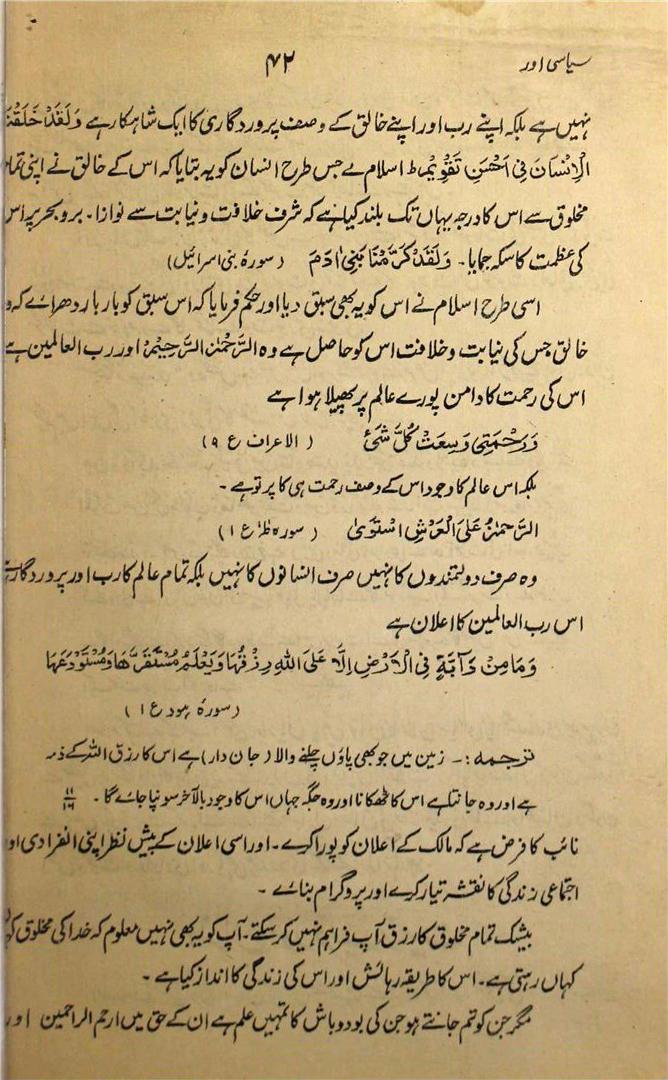 سیاسی اور ۴۲
نہیں ہے بلکہ اپنے رب اور اپنے خالق کے وصف پروردگاری کا ایک شاہکار ہے وَلَقَدْ خَلَقْنَا
الْاِنْسَانَ فِیْ اَحْسَنِ تَقْوِیْمٍ ط اسلام نے جس طرح انسان کو یہ بتایا کہ اس کے خالق نے اپنی تمام
مخلوق سے اس کا درجہ یہاں تک بلند کیا ہے کہ شرف خلافت و نیابت سے نوازا۔ بر و بحر پر اس
کی عظمت کا سکہ جمایا۔ وَلَقَدْ كَرَّمْنَا بَنِیْ اٰدَمَ (سورہ بنی اسرائیل)
اسی طرح اسلام نے اس کو یہ بھی سبق دیا اور حکم فرمایا کہ اس سبق کو بار بار دھرائے کہ وہ
خالق جس کی نیابت و خلافت اس کو حاصل ہے وہ الرَّحْمٰنُ الرَّحِیْمُ اور رب العالمین ہے
اس کی رحمت کا دامن پورے عالم پر پھیلا ہوا ہے
وَرَحْمَتِیْ وَسِعَتْ كُلَّ شَیْءٍ (الاعراف ع ۹)
بلکہ اس عالم کا وجود اس کے وصف رحمت ہی کا پرتو ہے۔
الرَّحْمٰنُ عَلَی الْعَرْشِ اسْتَوٰی (سورہ طٰہٰ ع ۱)
وہ صرف دولتمندوں کا نہیں صرف انسانوں کا نہیں بلکہ تمام عالم کا رب اور پروردگار ہے
اس رب العالمین کا اعلان ہے
وَمَا مِنْ دَآبَّةٍ فِی الْاَرْضِ اِلَّا عَلَی اللّٰهِ رِزْقُهَا وَیَعْلَمُ مُسْتَقَرَّهَا وَمُسْتَوْدَعَهَا
(سورہ ہود ع ۱)
ترجمہ:۔ زمین میں جو بھی پاؤں چلنے والا (جان دار) ہے اس کا رزق اللہ کے ذمہ
ہے اور وہ جانتا ہے اس کا ٹھکانا اور وہ جگہ جہاں اس کا وجود بالآخر سونپا جائے گا۔
نائب کا فرض ہے کہ مالک کے اعلان کو پورا کرے۔ اور اسی اعلان کے پیش نظر اپنی انفرادی اور
اجتماعی زندگی کا نقشہ تیار کرے اور پروگرام بنائے۔
بیشک تمام مخلوق کا رزق آپ فراہم نہیں کر سکتے۔ آپ کو یہ بھی نہیں معلوم کہ خدا کی مخلوق کہاں
کہاں رہتی ہے۔ اس کا طریقہ رہائش اور اس کی زندگی کا انداز کیا ہے۔
مگر جن کو تم جانتے ہو جن کی بود و باش کا تمہیں علم ہے ان کے حق میں ارحم الراحمین اور